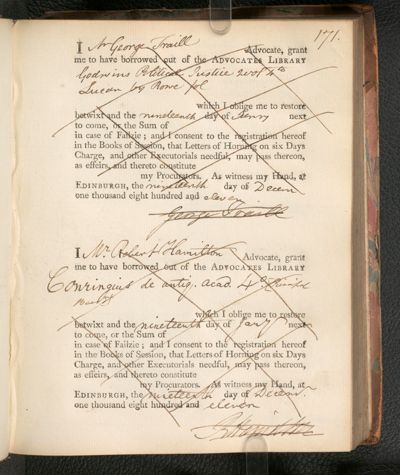 171.
I Mr George Traill Advocate, grant
me to have borrowed out of the ADVOCATES LIBRARY
Godwins Political Justice 2 vol 4to
Lucan by Rowe fol
which I oblige me to restore
betwixt and the nineteenth day of Janry next
to come, or the Sum of
in case of Failzie; and I consent to the registration hereof
in the Books of Session, that Letters of Horning on six Days
Charge, and other Executorials needful, may pass thereon,
as effeirs, and thereto constitute
my Procurators. As witness my Hand, at
EDINBURGH, the nineteenth day of Decem
one thousand eight hundred and eleven
George Traill
I Mr Robert Hamilton Advocate, grant
me to have borrowed out of the ADVOCATES LIBRARY
Conringius de antiq. acad. 4to
which I oblige me to restore
betwixt and the nineteenth day of Jany next
to come, or the Sum of
in case of Failzie; and I consent to the registration hereof
in the Books of Session, that Letters of Horning on six Days
Charge, and other Executorials needful, may pass thereon,
as effeirs, and thereto constitute
my Procurators. As witness my Hand, at
EDINBURGH, the nineteenth day of Decemr.
one thousand eight hundred and eleven